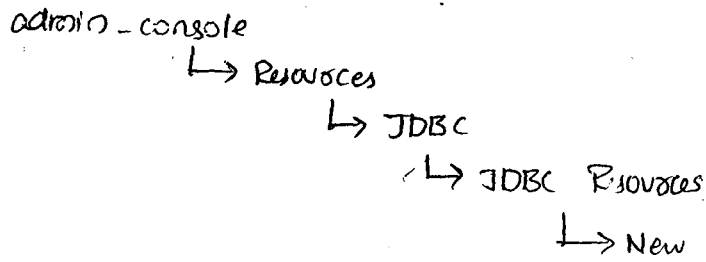 admin-console
↳ Resources
↳ JDBC
↳ JDBC Resources
↳ New